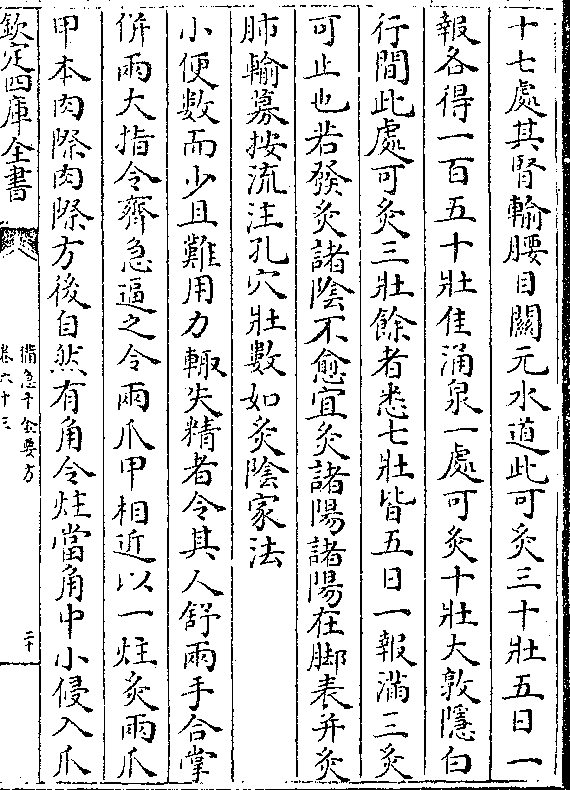 十七處其腎輸腰目關元水道此可灸三十壯五日一
報各得一百五十壯佳涌泉一處可灸十壯大敦隱白
行間此處可灸三壯餘者悉七壯皆五日一報滿三灸
可止也若發灸諸陰不愈宜灸諸陽諸陽在脚表并灸
肺輸募按流注孔穴壯數如灸陰家法
小便數而少且難用力輙失精者令其人舒兩手合掌
併兩大指令齊急逼之令兩爪甲相近以一炷灸兩爪
甲本肉際肉際方後自然有角令炷當角中小侵入爪
欽定四庫全書
備急千金要方
卷六十三
二十